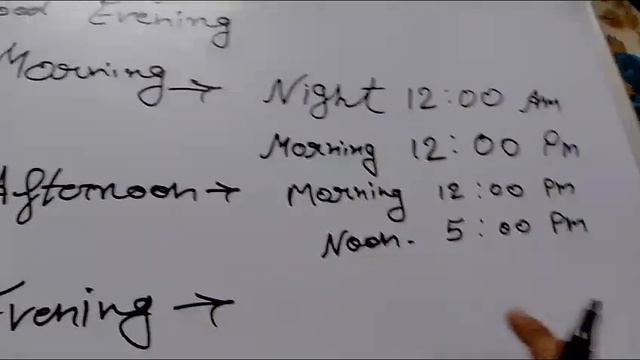 Evening
Morning → Night 12:00 Am
Morning 12:00 Pm
Afternoon → Morning 12:00 Pm
Noon. 5:00 Pm
Evening →